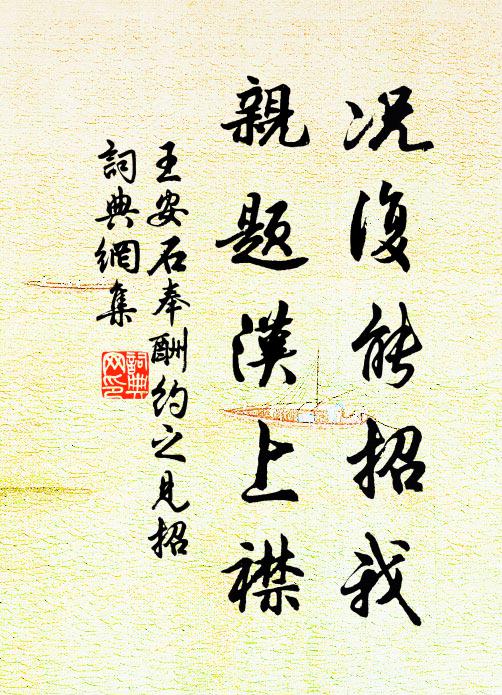 况復能招我
親題漢上襟
王安石奉酬約之見招
詞典網集
詞典
网印